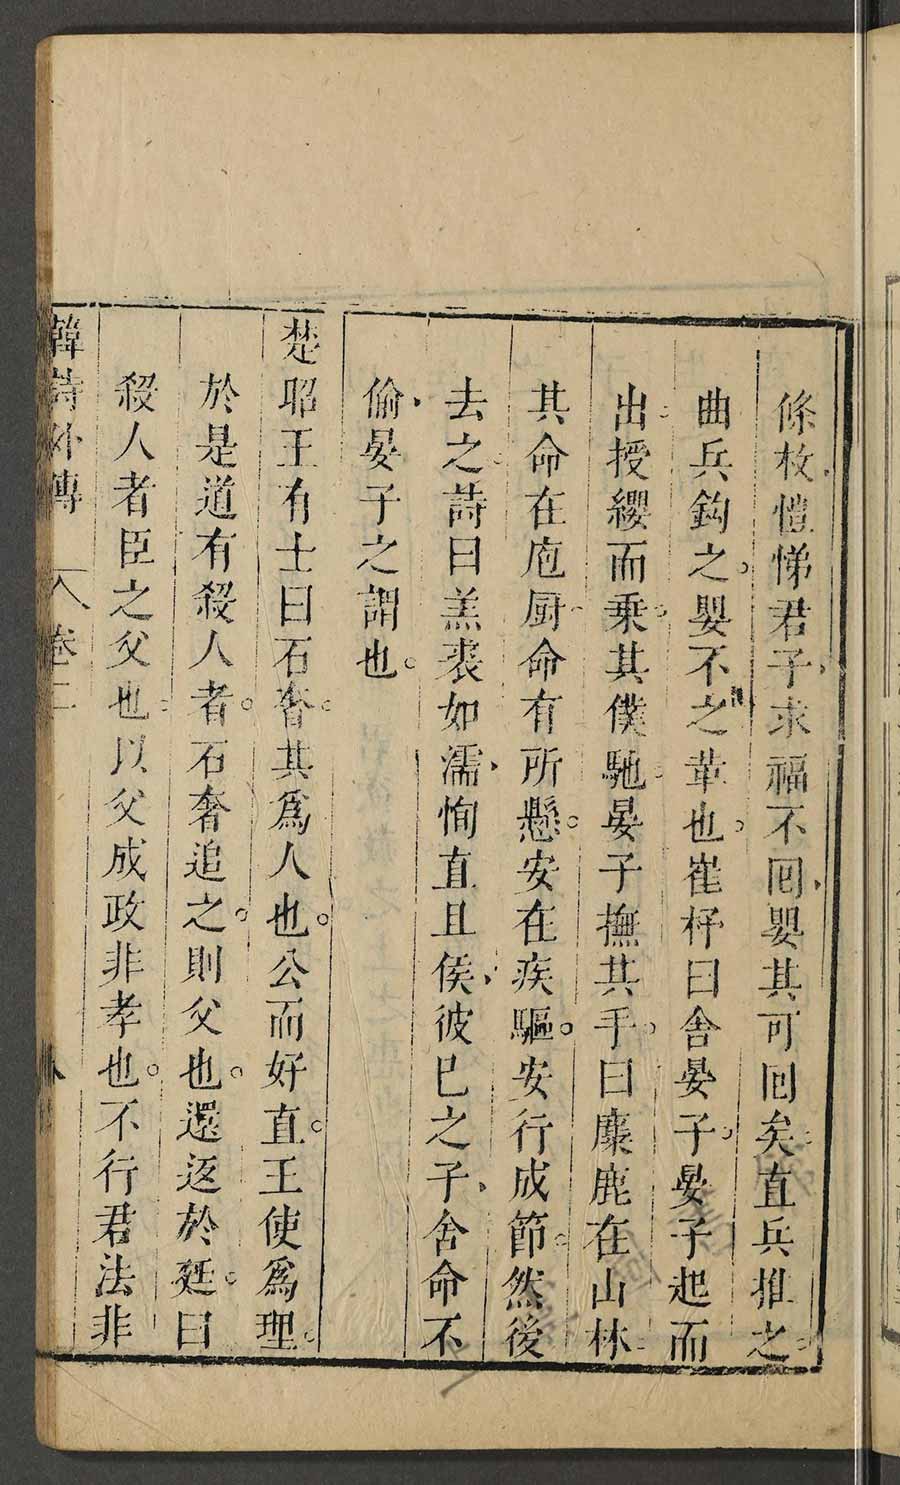 條枚愷悌君子求福不回嬰其可回矣直兵推之
曲兵鈎之嬰不之革也崔杼曰舍晏子晏子起而
出授纓而乗其僕馳晏子撫其手曰麋鹿在山林
其命在庖厨命有所懸安在疾驅安行成節然後
去之詩曰羔裘如濡恂直且侯彼巳之子舍命不
偷晏子之謂也
楚昭王有士曰石奢其爲人也公而好直王使爲理
於是道有殺人者石奢追之則父也還返於廷曰
殺人者臣之父也以父成政非孝也不行君法非
韓詩外傳 卷二 八